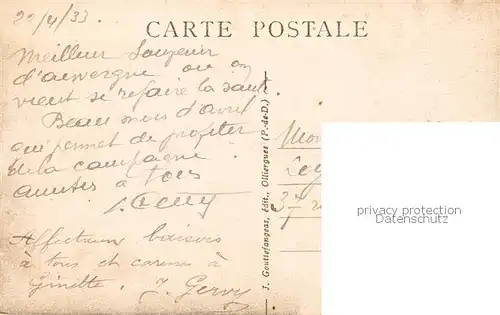 22/4/33.
CARTE POSTALE
Meilleur Souvenir
d'auvergne ou on
vient se refaire la santé
Beau mois d'avril
qui permet de profiter
de la campagne
amitiés à tous
Affectueux baisers
à tous et caresses à
Ginette.
J. Gouttefangeas, édit., Olliergues (P.-de-D.)
37
privacy protection
Datenschutz